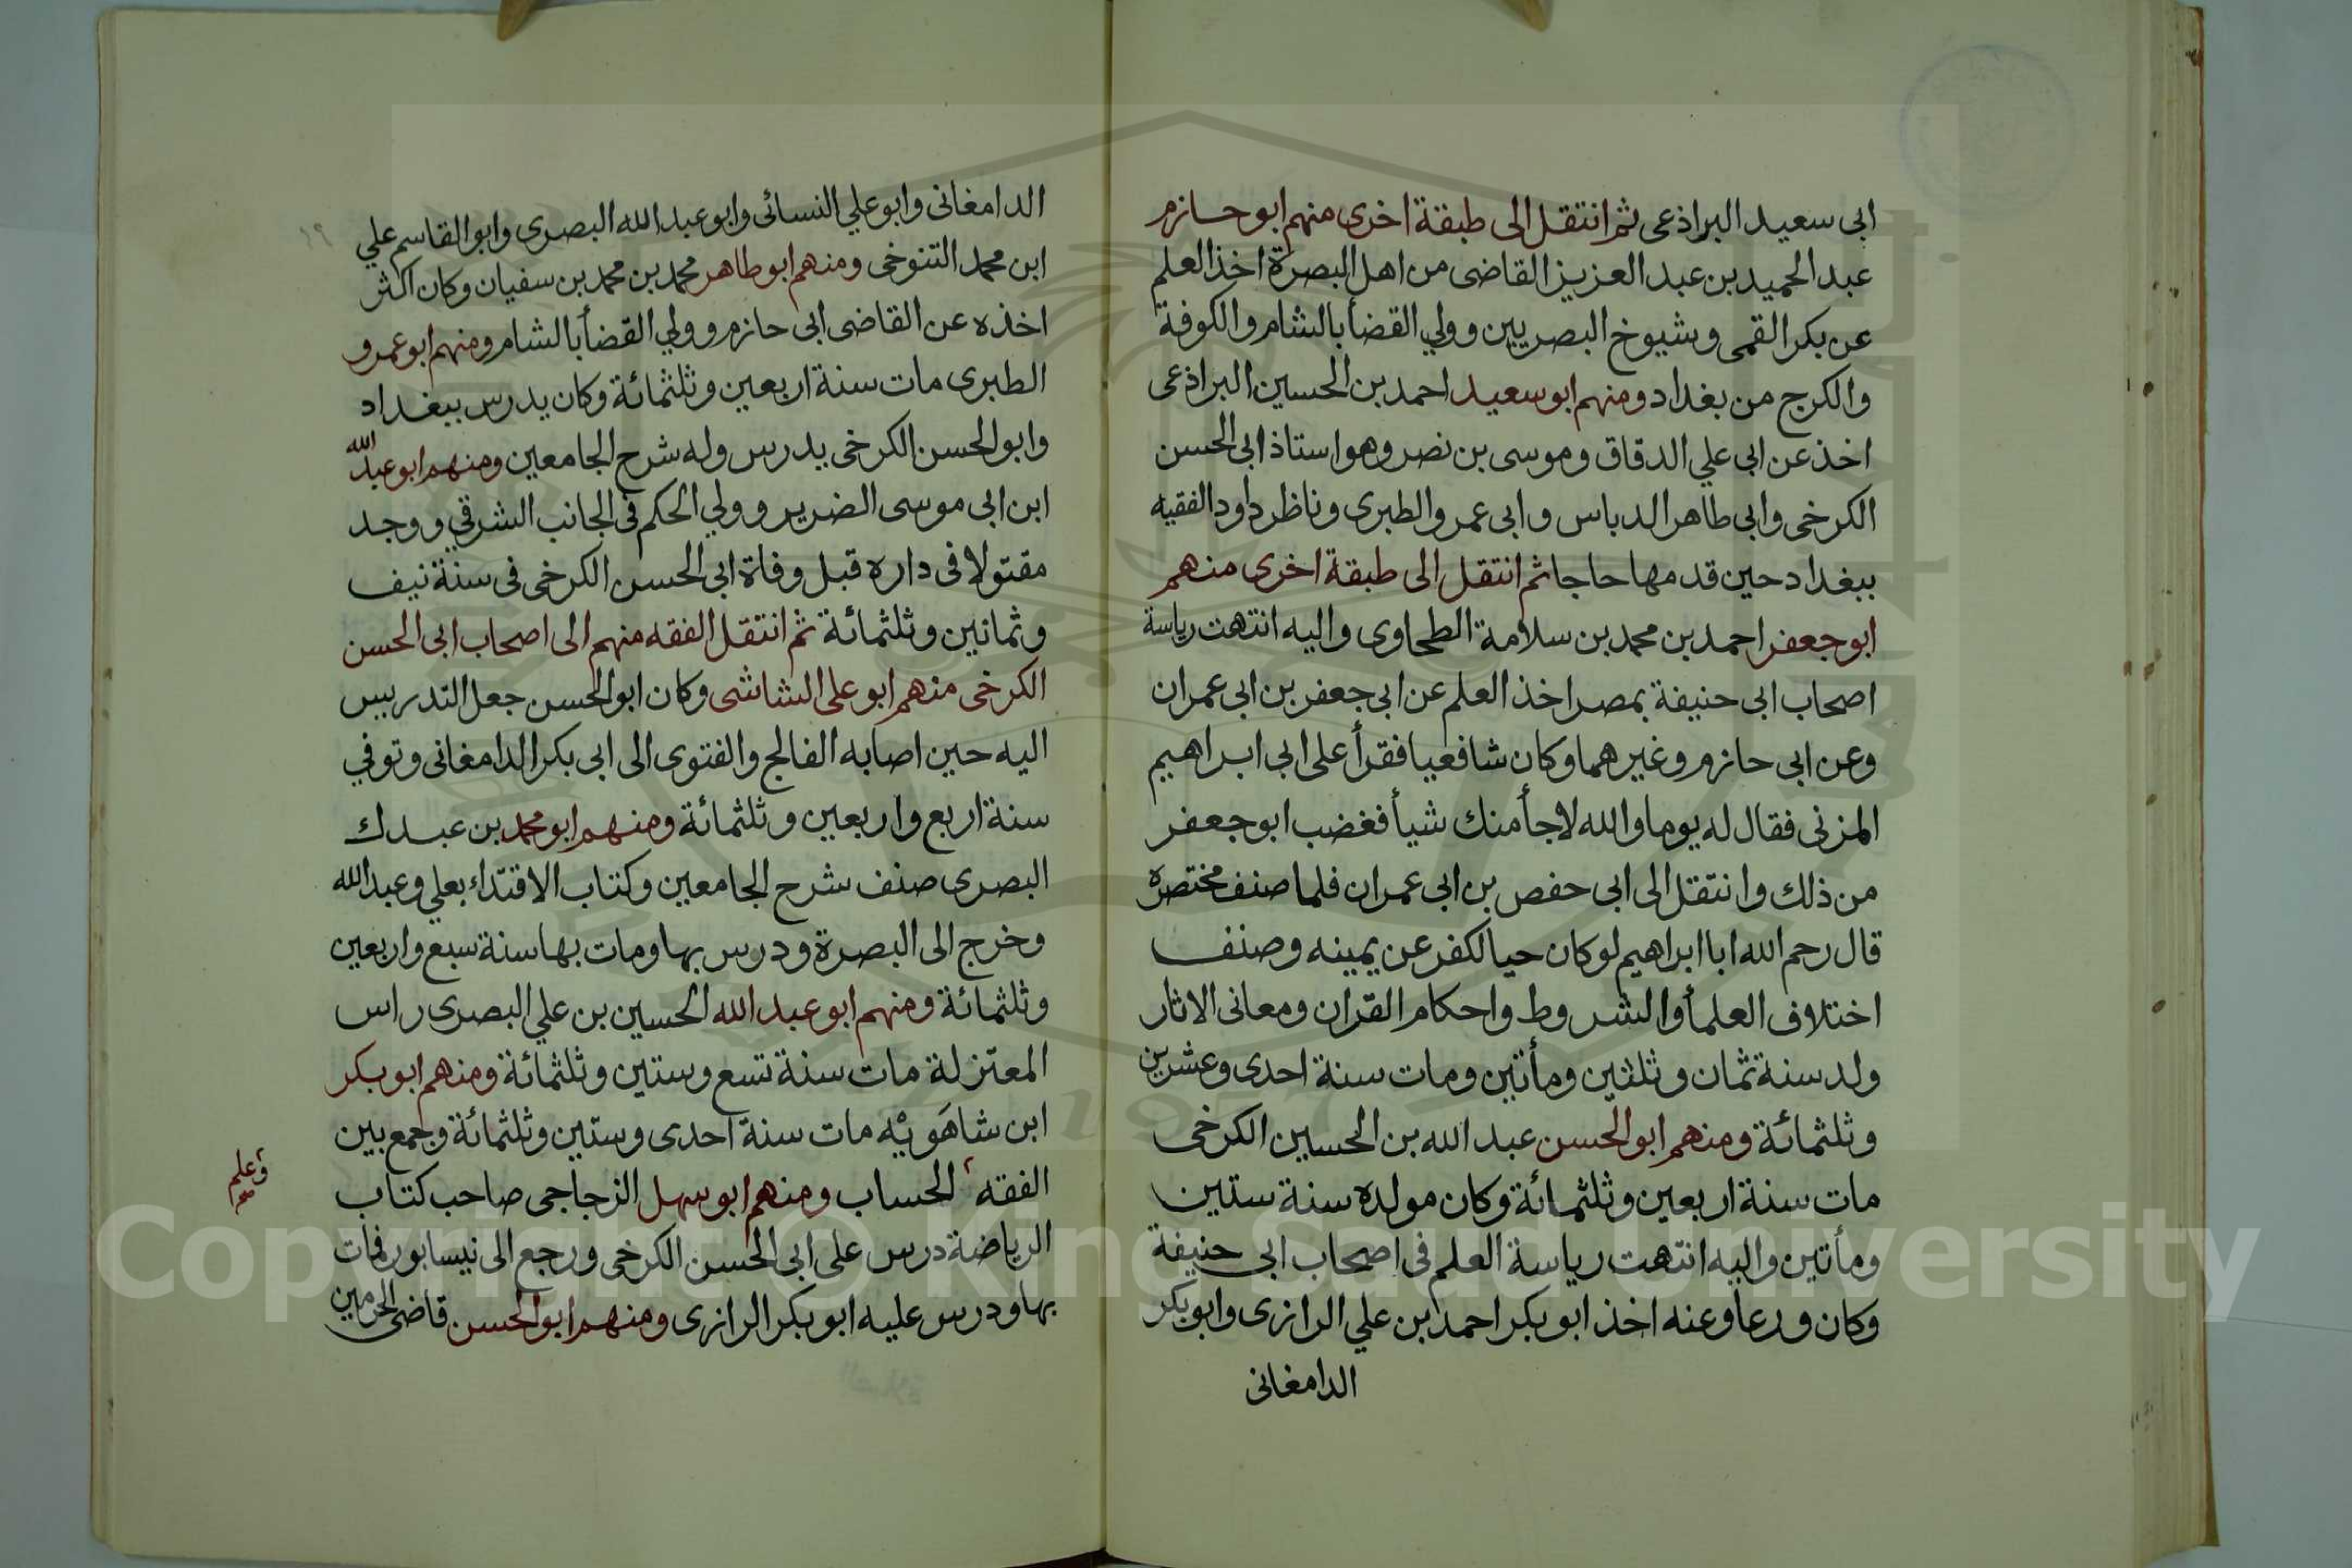 ابى سعيد البراذعى ثم انتقل الى طبقة اخرى منهم ابو حازم
عبد الحميد بن عبد العزيز القاضى من اهل البصرة اخذ العلم
عن بكر القمى وشيوخ البصريين وولي القضأ بالشام والكوفة
والكرج من بغداد ومنهم ابو سعيد احمد بن الحسين البراذعى
اخذ عن ابى علي الدقاق وموسى بن نصر وهو استاذ ابى الحسن
الكرخى وابى طاهر الدباس وابى عمرو الطبرى وناظر داود الفقيه
ببغداد حين قدمها حاجا ثم انتقل الى طبقة اخرى منهم
ابو جعفر احمد بن محمد بن سلامة الطحاوى واليه انتهت رياسة
اصحاب ابى حنيفة بمصر اخذ العلم عن ابى جعفر بن ابى عمران
وعن ابى حازم وغيرهما وكان شافعيا فقرأ على ابى ابراهيم
المزنى فقال له يوما والله لاجأ منك شيأ فغضب ابو جعفر
من ذلك وانتقل الى ابى حفص بن ابى عمران فلما صنف مختصره
قال رحم الله ابا ابراهيم لو كان حيا لكفر عن يمينه وصنف
اختلاف العلمأ والشروط واحكام القران ومعانى الاثار
ولد سنة ثمان وثلثين ومأتين ومات سنة احدى وعشرين
وثلثمائة ومنهم ابو الحسن عبد الله بن الحسين الكرخى
مات سنة اربعين وثلثمائة وكان مولده سنة ستين
ومأتين واليه انتهت رياسة العلم فى اصحاب ابى حنيفة
وكان ورعا وعنه اخذ ابو بكر احمد بن علي الرازى وابو بكر
الدامغانى
الدامغانى وابو علي النسائى وابو عبد الله البصرى وابو القاسم علي
ابن محمد التنوخى ومنهم ابو طاهر محمد بن محمد بن سفيان وكان اكثر
اخذه عن القاضى ابى حازم وولي القضأ بالشام ومنهم ابو عمرو
الطبرى مات سنة اربعين وثلثمائة وكان يدرس ببغداد
وابو الحسن الكرخى يدرس وله شرح الجامعين ومنهم ابو عبد الله
ابن ابى موسى الضرير وولي الحكم فى الجانب الشرقي ووجد
مقتولا فى داره قبل وفاة ابى الحسن الكرخى فى سنة نيف
وثمانين وثلثمائة ثم انتقل الفقه منهم الى اصحاب ابى الحسن
الكرخى منهم ابو على الشاشى وكان ابو الحسن جعل التدريس
اليه حين اصابه الفالج والفتوى الى ابى بكر الدامغانى وتوفي
سنة اربع واربعين وثلثمائة ومنهم ابو محمد بن عبدك
البصرى صنف شرح الجامعين وكتاب الاقتداء بعلي وعبد الله
وخرج الى البصرة ودرس بها ومات بها سنة سبع واربعين
وثلثمائة ومنهم ابو عبد الله الحسين بن علي البصرى راس
المعتزلة مات سنة تسع وستين وثلثمائة ومنهم ابو بكر
ابن شاهَويْه مات سنة احدى وستين وثلثمائة وجمع بين
الفقه الحساب ومنهم ابو سهل الزجاجى صاحب كتاب
وعلم
الرياضة درس على ابى الحسن الكرخى ورجع الى نيسابور فمات
بها ودرس عليه ابو بكر الرازى ومنهم ابو الحسن قاضى الحرمين
١٩
Copyright © King Saud University
1957